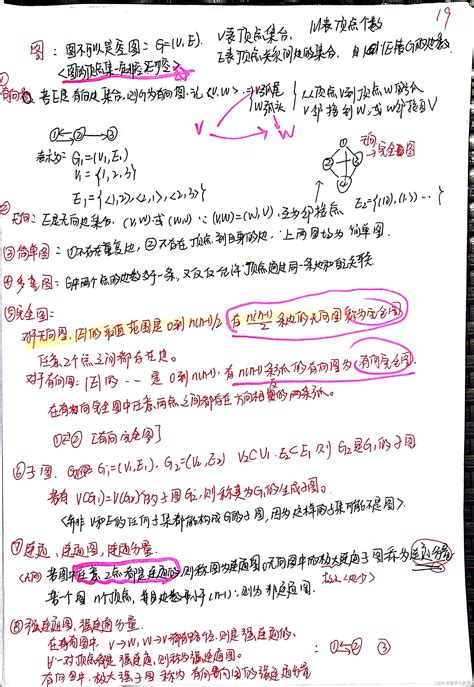 19
图：图不可以是空图：G=(V,E). V表顶点集合, |V|表顶点个数
E表顶点关系间边的集合,
<图的顶点集一定非空, 边可空>
①有向图：若E是有向边集合,则G为有向图.记<V,W>
弧尾
弧头
从顶点V到顶点W的弧
V邻接到W,或W邻接自V
V W
① ② ③
表示为：G₁=(V₁,E₁)
V₁={1,2,3}
E₁={<1,2>,<2,1>,<2,3>}
无向完全图
②无向：E是无向边集合. (V,W)或(W,V) ∵(V,W)=(W,V), 互为邻接点 E₂={(1,2),(1,3)…}
③简单图：①不存在重复边, ②不存在顶点到自身的边, 上两图均为简单图.
④多重图：G中两个点的边数多于一条,又允许顶点通过同一条边和自己关联
⑤完全图：
对于无向图, |E|的取值范围是0到n(n-1)/2, 有n(n-1)/2条边的无向图称为完全图
任意2个点之间都存在边。
对于有向图：|E|的--是0到n(n-1), 有n(n-1)条弧的有向图为有向完全图
在有向完全图中任意两点之间都存在方向相反的两条弧。
①⇄② [有向完全图]
⑥子图. G₁=(V₁,E₁). G₂=(V₂,E₂) V₂⊂V₁. E₂⊂E₁ 则G₂是G₁的子图
若有V(G₁)=V(G₂)的子图G₂,则称其为G₁的生成子图。
<并非V和E的任何子集都能构成G的子图,因为这样的子集可能不是图>
⑦连通、连通图,连通分量
(无向) 若图中任意2点都是连通的,则称图为连通图。无向图中的极大连通子图称为连通分量
若一个图n个顶点,并且边数小于(n-1):则为非连通图.
⑧强连通图,强连通分量.
在有向图中. V→W, W→V都有路径,则是强连通的.
若一对顶点都是强连通,则称为强连通图。
有向图中.极大强子图称为有向图的强连通分量
①⇄② ③